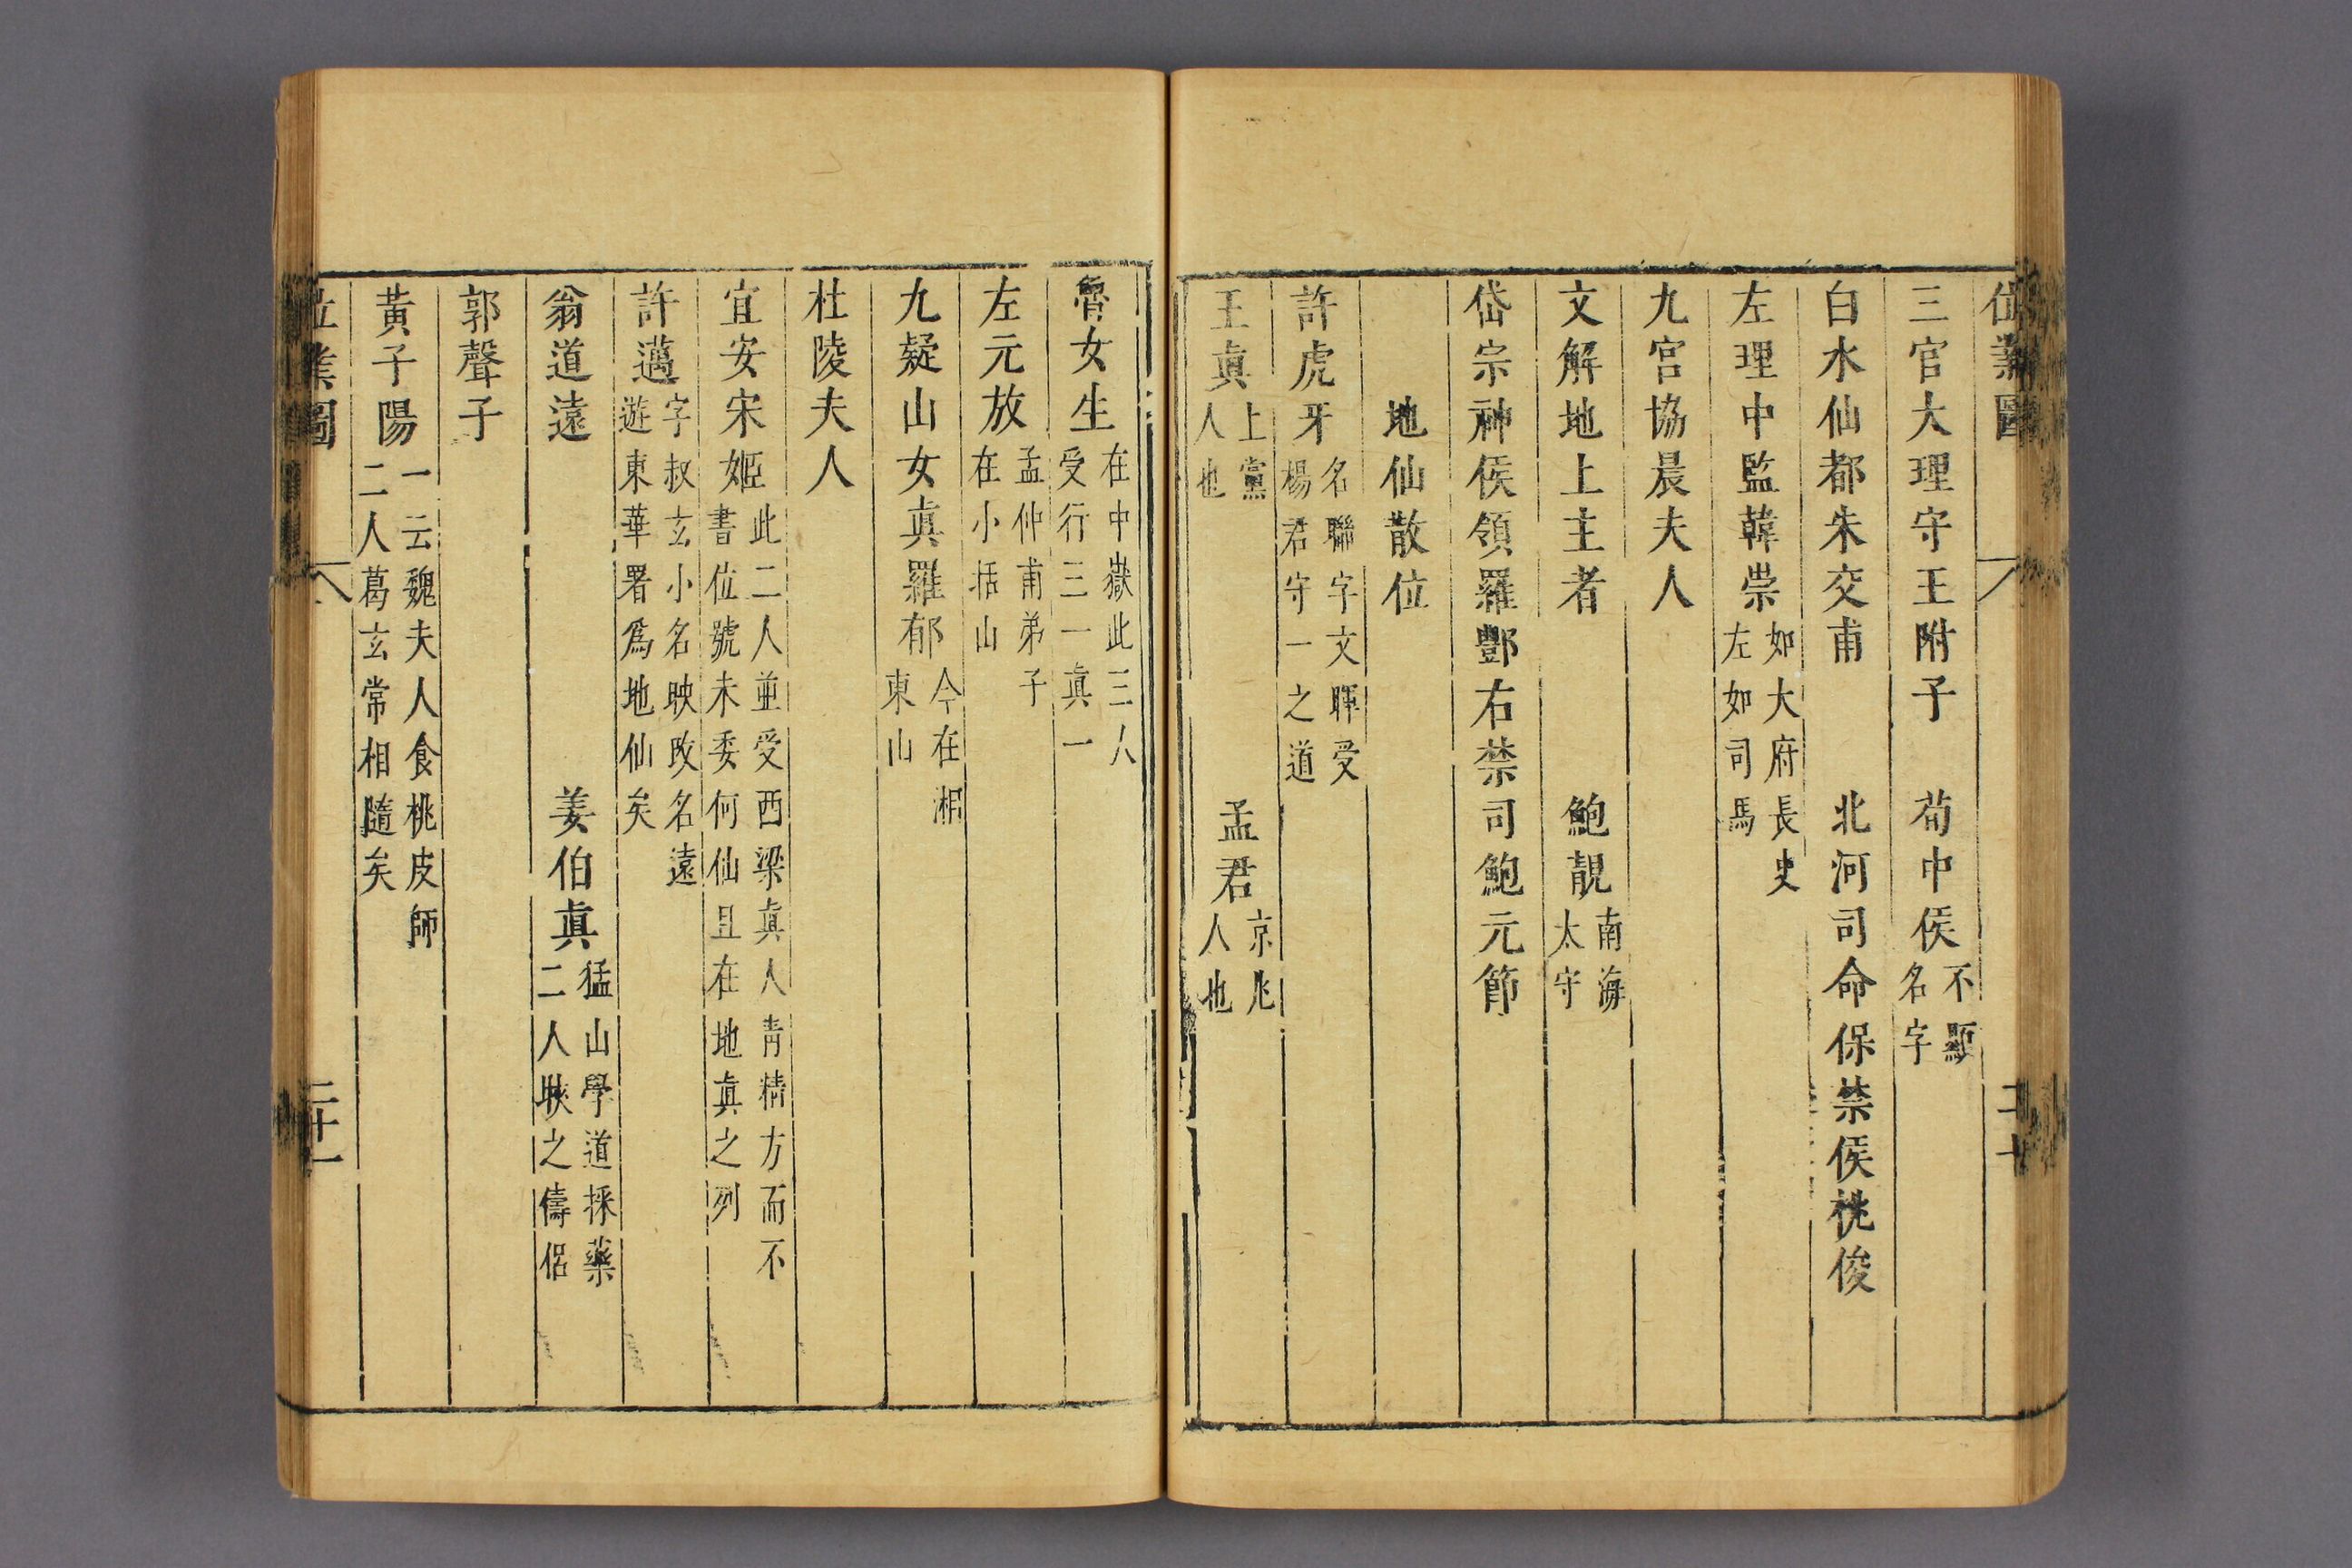 位業圖
三官大理守王附子　荀中侯不顯名字
白水仙都朱交甫　北河司命保禁侯桃俊
左理中監韓崇如大府長史左如司馬
九宮協晨夫人
文解地上主者　鮑靚南海太守
岱宗神侯領羅酆右禁司鮑元節
地仙散位
許虎牙名聯字文暉受楊君守一之道
王真上黨人也　孟君京兆人也
魯女生在中嶽此三人受行三一真一
左元放孟仲甫弟子在小括山
九疑山女真羅郁今在湘東山
杜陵夫人
宜安宋姬此二人並受西梁真人青精方而不書位號未委何仙且在地真之列
許邁字叔玄小名映改名遠遊東華署為地仙矣
翁道遠　姜伯真猛山學道採藥二人映之儔侶
郭聲子
黃子陽一云魏夫人食桃皮師二人葛玄常相隨矣
位業圖
二十一